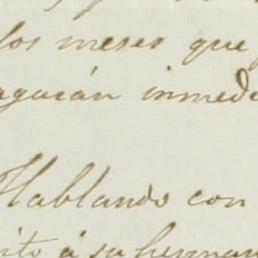 los meses que
agarán inmedi
Hablando con
ito á su herman